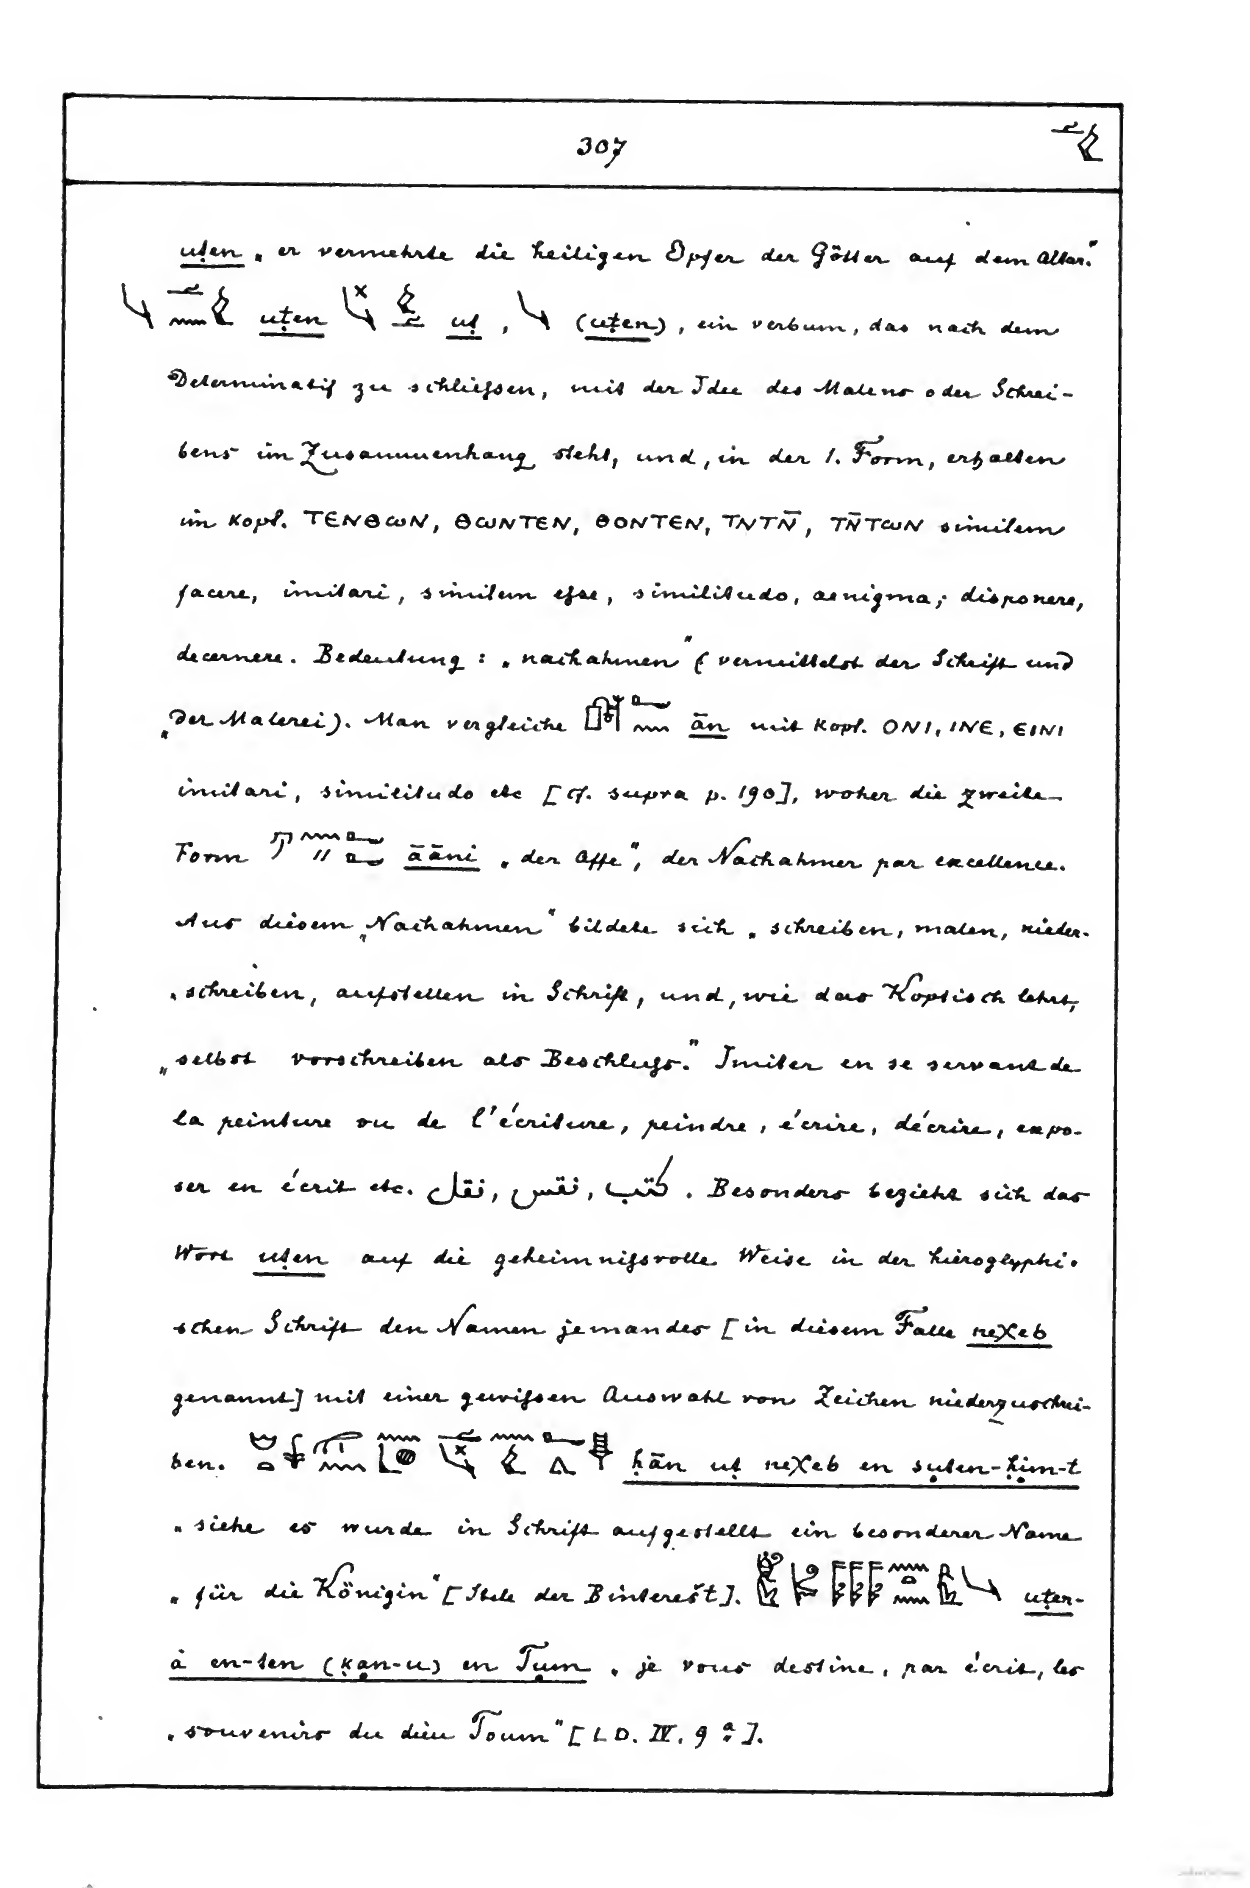 307
uṭen „ er vermehrte die heiligen Opfer der Götter auf dem Altar."
uṭen uṭ , (uṭen), ein verbum, das nach dem
Determinatif zu schliefsen, mit der Idee des Malens oder Schrei-
bens im Zusammenhang steht, und, in der 1. Form, erhalten
im Kopt. ⲦⲈⲚⲐⲰⲚ, ⲐⲰⲚⲦⲈⲚ, ⲐⲞⲚⲦⲈⲚ, ⲦⲚⲦⲚ̄, ⲦⲚ̄ⲦⲰⲚ similem
facere, imitari, similem efse, similitudo, aenigma; disponere,
decernere. Bedeutung: „nachahmen" (vermittelst der Schrift und
„der Malerei). Man vergleiche ān mit Kopt. ⲞⲚⲒ, ⲒⲚⲈ, ⲈⲒⲚⲒ
imitari, similitudo etc [cf. supra p. 190], woher die zweite
Form āāni „der Affe", der Nachahmer par excellence.
Aus diesem „Nachahmen" bildete sich „schreiben, malen, nieder-
„schreiben, aufstellen in Schrift, und, wie das Koptisch lehrt,
„selbst vorschreiben als Beschlufs." Imiter en se servant de
la peinture ou de l'écriture, peindre, écrire, décrire, expo-
ser en écrit etc. نقل, نقس, كتب. Besonders bezieht sich das
Wort uṭen auf die geheimnifsvolle Weise in der hieroglyphi-
schen Schrift den Namen jemandes [in diesem Falle neχeb
genannt] mit einer gewifsen Auswahl von Zeichen niederzuschrei-
ben. ḥān uṭ neχeb en suten-ḥim-t
„siehe es wurde in Schrift aufgestellt ein besonderer Name
„für die Königin" [Stele der Binterešt]. uṭen-
à en-ten (ḳan-u) en Tum „je vous destine, par écrit, les
„souvenirs du dieu Toum" [LD. IV. 9 a].